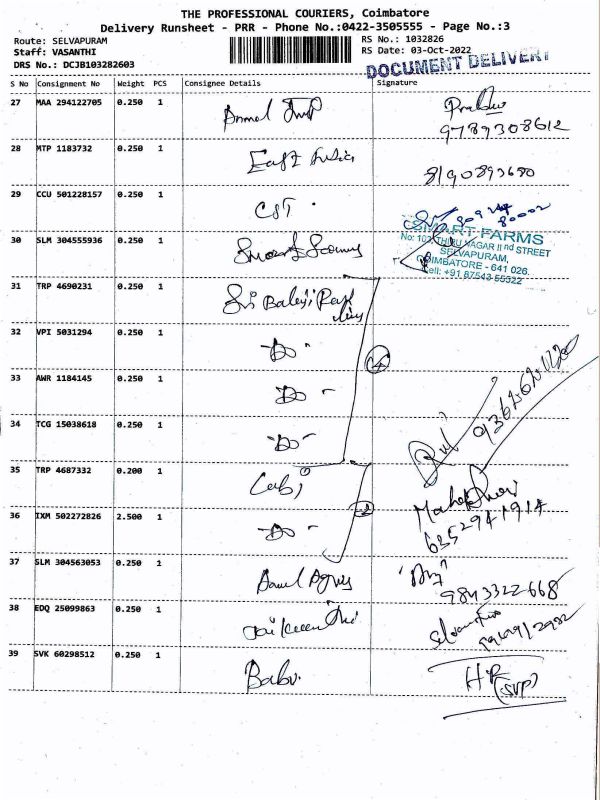 THE PROFESSIONAL COURIERS, Coimbatore
Delivery Runsheet - PRR - Phone No.:0422-3505555 - Page No.:3
Route: SELVAPURAM
RS No.: 1032826
Staff: VASANTHI
RS Date: 03-Oct-2022
DRS No.: DCJB103282603
DOCUMENT DELIVERY
S No Consignment No Weight PCS Consignee Details Signature
27 MAA 294122705 0.250 1
9789308612
28 MTP 1183732 0.250 1 East India
8190893680
29 CCU 501228157 0.250 1 CST
30 SLM 304555936 0.250 1
SMART FARMS
No: 102, THIRU NAGAR II nd STREET
SELVAPURAM,
COIMBATORE - 641 026.
Cell: +91 87543 55522
31 TRP 4690231 0.250 1 Sri Balaji
32 VPI 5031294 0.250 1 -Do-
4
33 AWR 1184145 0.250 1 -Do-
34 TCG 15038618 0.250 1 -Do-
35 TRP 4687332 0.200 1
36 IXM 502272826 2.500 1 -Do-
6352941914
37 SLM 304563053 0.250 1
9843322668
38 EDQ 25099863 0.250 1
39 SVK 60298512 0.250 1 Babu.
(SVP)